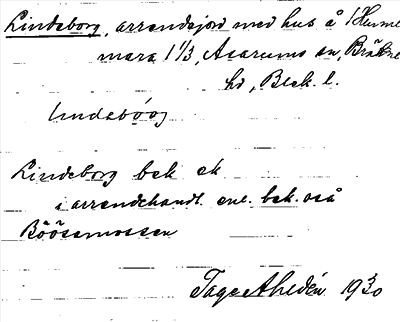 Lindeborg, arrendejord med hus å Hemme
mara 1 1/3, Asarums sn, Bräkne
hd, Blek. l.
lindebórj
Lindeborg bek ek
i arrendehandl. enl. bek. oså
Böösamossen
Tage Ahldén 1930